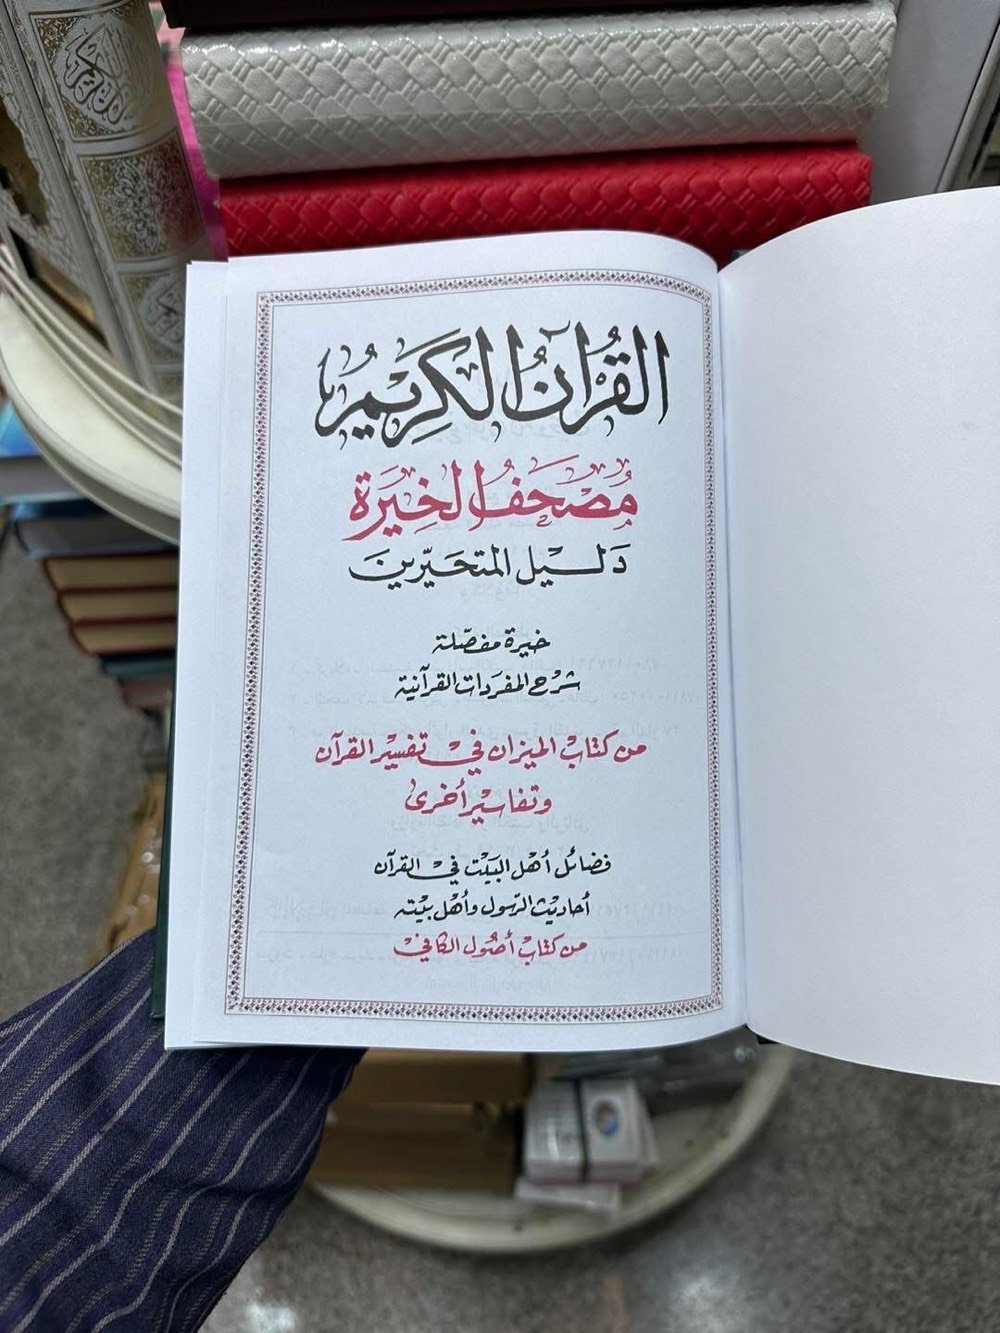 القُرآنُ الكَرِيمُ
مُصْحَفُ الخِيَرَة
دَلِيلُ المتحَيِّرينَ
خيرة مفصّلة
شرح المفردات القرآنية
من كتاب الميزان في تفسير القرآن
وتفاسير أخرى
فضائل أهل البيت في القرآن
أحاديث الرّسول وأهل بيته
من كتاب أصول الكافي